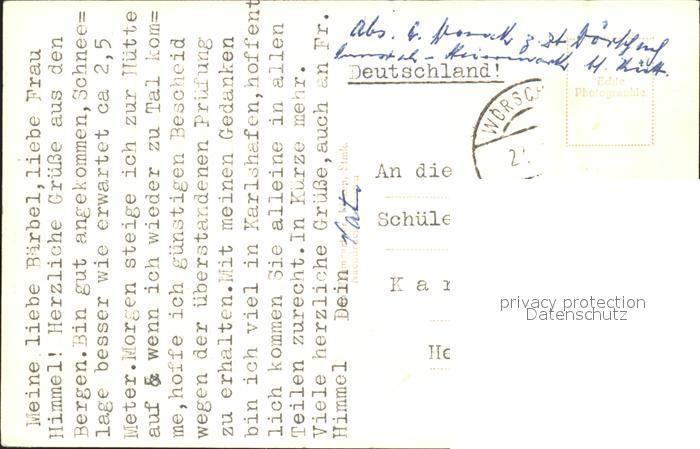 Meine liebe Bärbel,liebe Frau
Himmel! Herzliche Grüße aus den
Bergen.Bin gut angekommen,Schnee=
lage besser wie erwartet ca 2,5
Meter.Morgen steige ich zur Hütte
auf & wenn ich wieder zu Tal kom=
me,hoffe ich günstigen Bescheid
wegen der überstandenen Prüfung
zu erhalten.Mit meinen Gedanken
bin ich viel in Karlshafen,hoffent
lich kommen Sie alleine in allen
Teilen zurecht.In Kürze mehr.
Viele herzliche Grüße,auch an Fr.
Himmel Dein
Abs.
Deutschland!
Echte
Photographie
WÖRSCH
An die
Schüle
Kar
He
privacy protection
Datenschutz